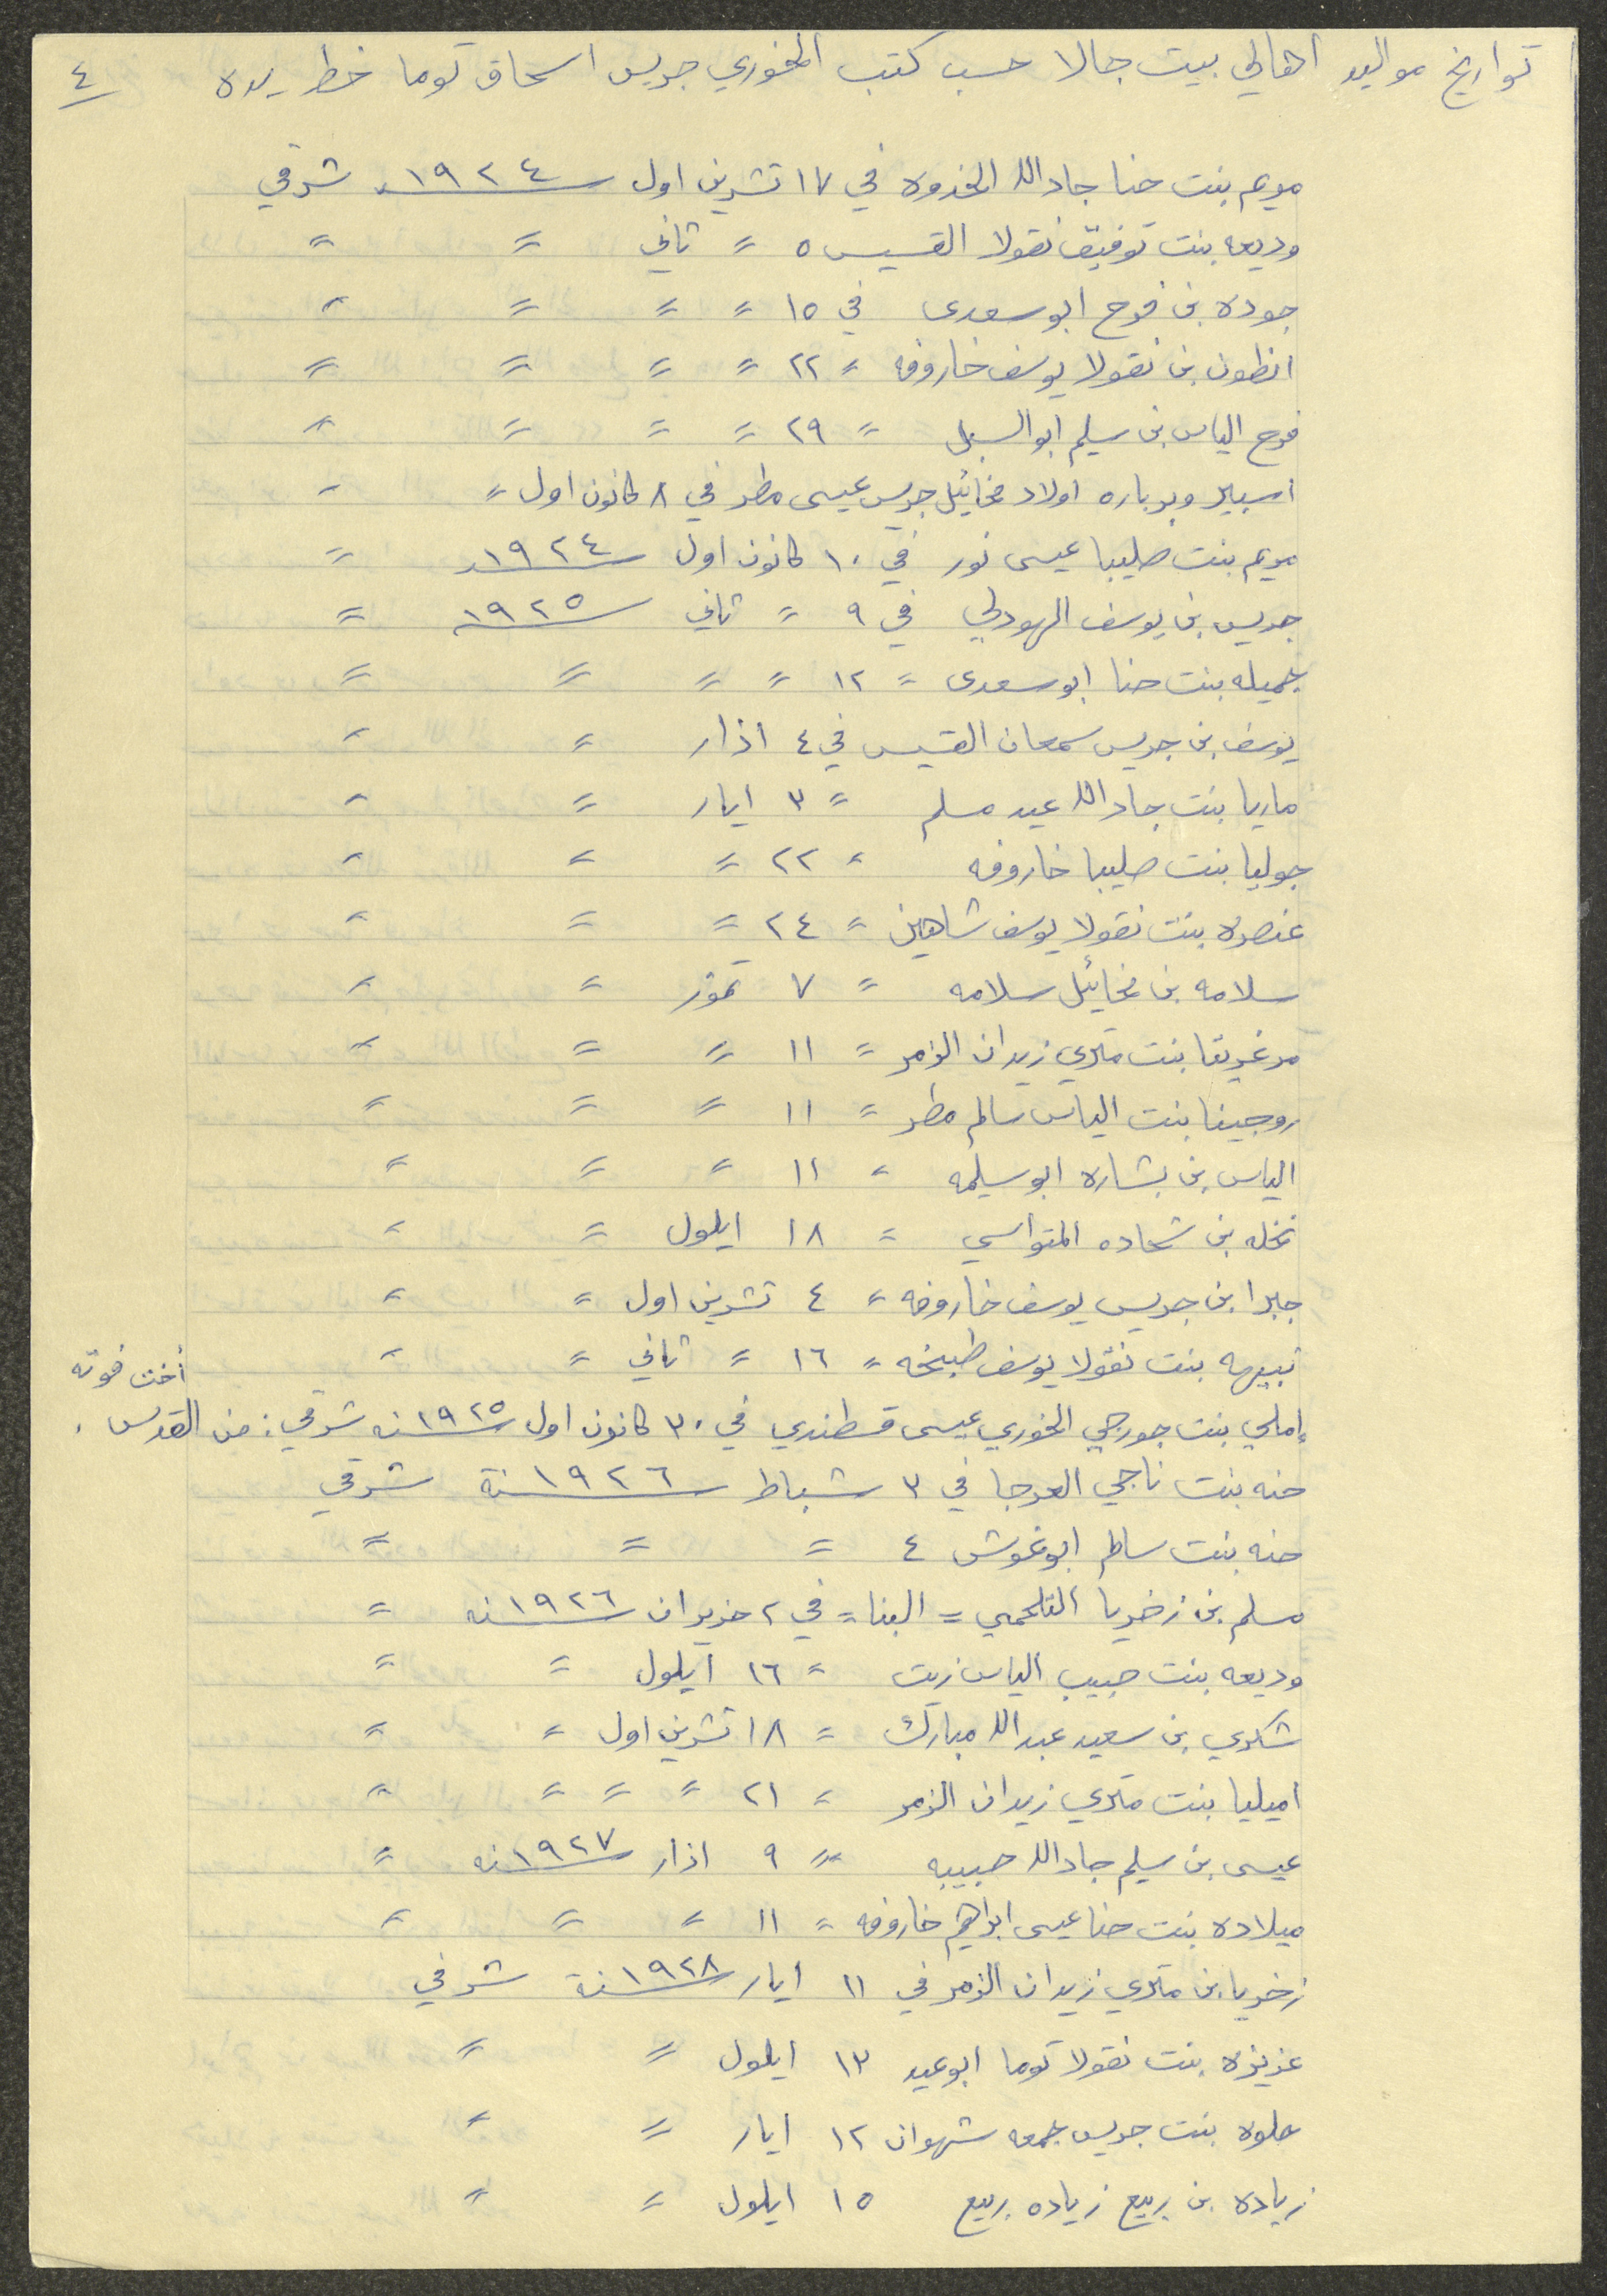 تواريخ مواليد اهالي بيت جالا حسب كتب الخوري جريس اسحاق توما خط يده ٤
مريم بنت حنا جادالله الخدوه في ١٧ تشرين اول سـ١٩٢٤ـنه شرقي
وديعه بنت توفيق نقولا القسيس ٥ = ثاني = =
جوده بن فرح ابو سعدى في ١٥ = = = =
انطون بن نقولا يوسف خاروفه = ٢٢ = = = =
فرح الياس بن سليم ابو السبل = ٢٩ = = = =
اسبير وبرباره اولاد مخائيل جريس عيسى مطر في ٨ كانون اول = =
مريم بنت صليبا عيسى نور في ١٠ كانون اول سـ١٩٢٤ـنه =
جريس بن يوسف الهودلي في ٩ = ثاني سـ١٩٢٥ـنه =
جميله بنت حنا ابو سعدى = ١٢ = = = =
يوسف بن جريس سمعان القسيس في ٤ اذار = =
ماريا بنت جادالله عيد مسلم = ٣ ايار = =
جوليا بنت صليبا خاروفه = ٢٢ = = =
عنصره بنت نقولا يوسف شاهين = ٢٤ = = =
سلامه بن مخائيل سلامه = ٧ تموز = =
مرغريتا بنت متري زيدان الزمر = ١١ = = =
روجينا بنت الياس سالم مطر = ١١ = = =
الياس بن بشاره ابو سليمه = ١١ = = =
نخله بن شحاده المتواسي = ١٨ ايلول = =
جبرا بن جريس يوسف خاروفه = ٤ تشرين اول = =
نبيهه بنت نقولا يوسف طبيخه = ١٦ = ثاني = =
أخت فوته
إملي بنت جورجي الخوري عيسى قسطندي في ٣٠ كانون اول سـ١٩٢٥ـنه شرقي: من القدس.
حنه بنت ناجي العرجا في ٣ شباط سـ١٩٢٦ـنة شرقي
حنه بنت سالم ابو غوش ٤ = = =
مسلم بن زخريا التلحمي = البنا = في ٢ حزيران سـ١٩٢٦ـنه =
وديعه بنت حبيب الياس زيت = ١٦ ايلول = =
شكري بن سعيد عبدالله مبارك = ١٨ تشرين اول = =
اميليا بنت متري زيدان الزمر = ٢١ = = = =
عيسى بن سليم جادالله حبيبه = ٩ اذار سـ١٩٢٧ـنه =
ميلاده بنت حنا عيسى ابراهيم خاروفه = ١١ = = =
زخريا بن متري زيدان الزمر في ١١ ايار سـ١٩٢٨ـنة شرقي
عزيزه بنت نقولا توما ابو عيد ١٣ ايلول = =
حلوه بنت جريس جمعه شهوان ١٢ ايار = =
زياده بن ربيع زياده ربيع ١٥ ايلول = =